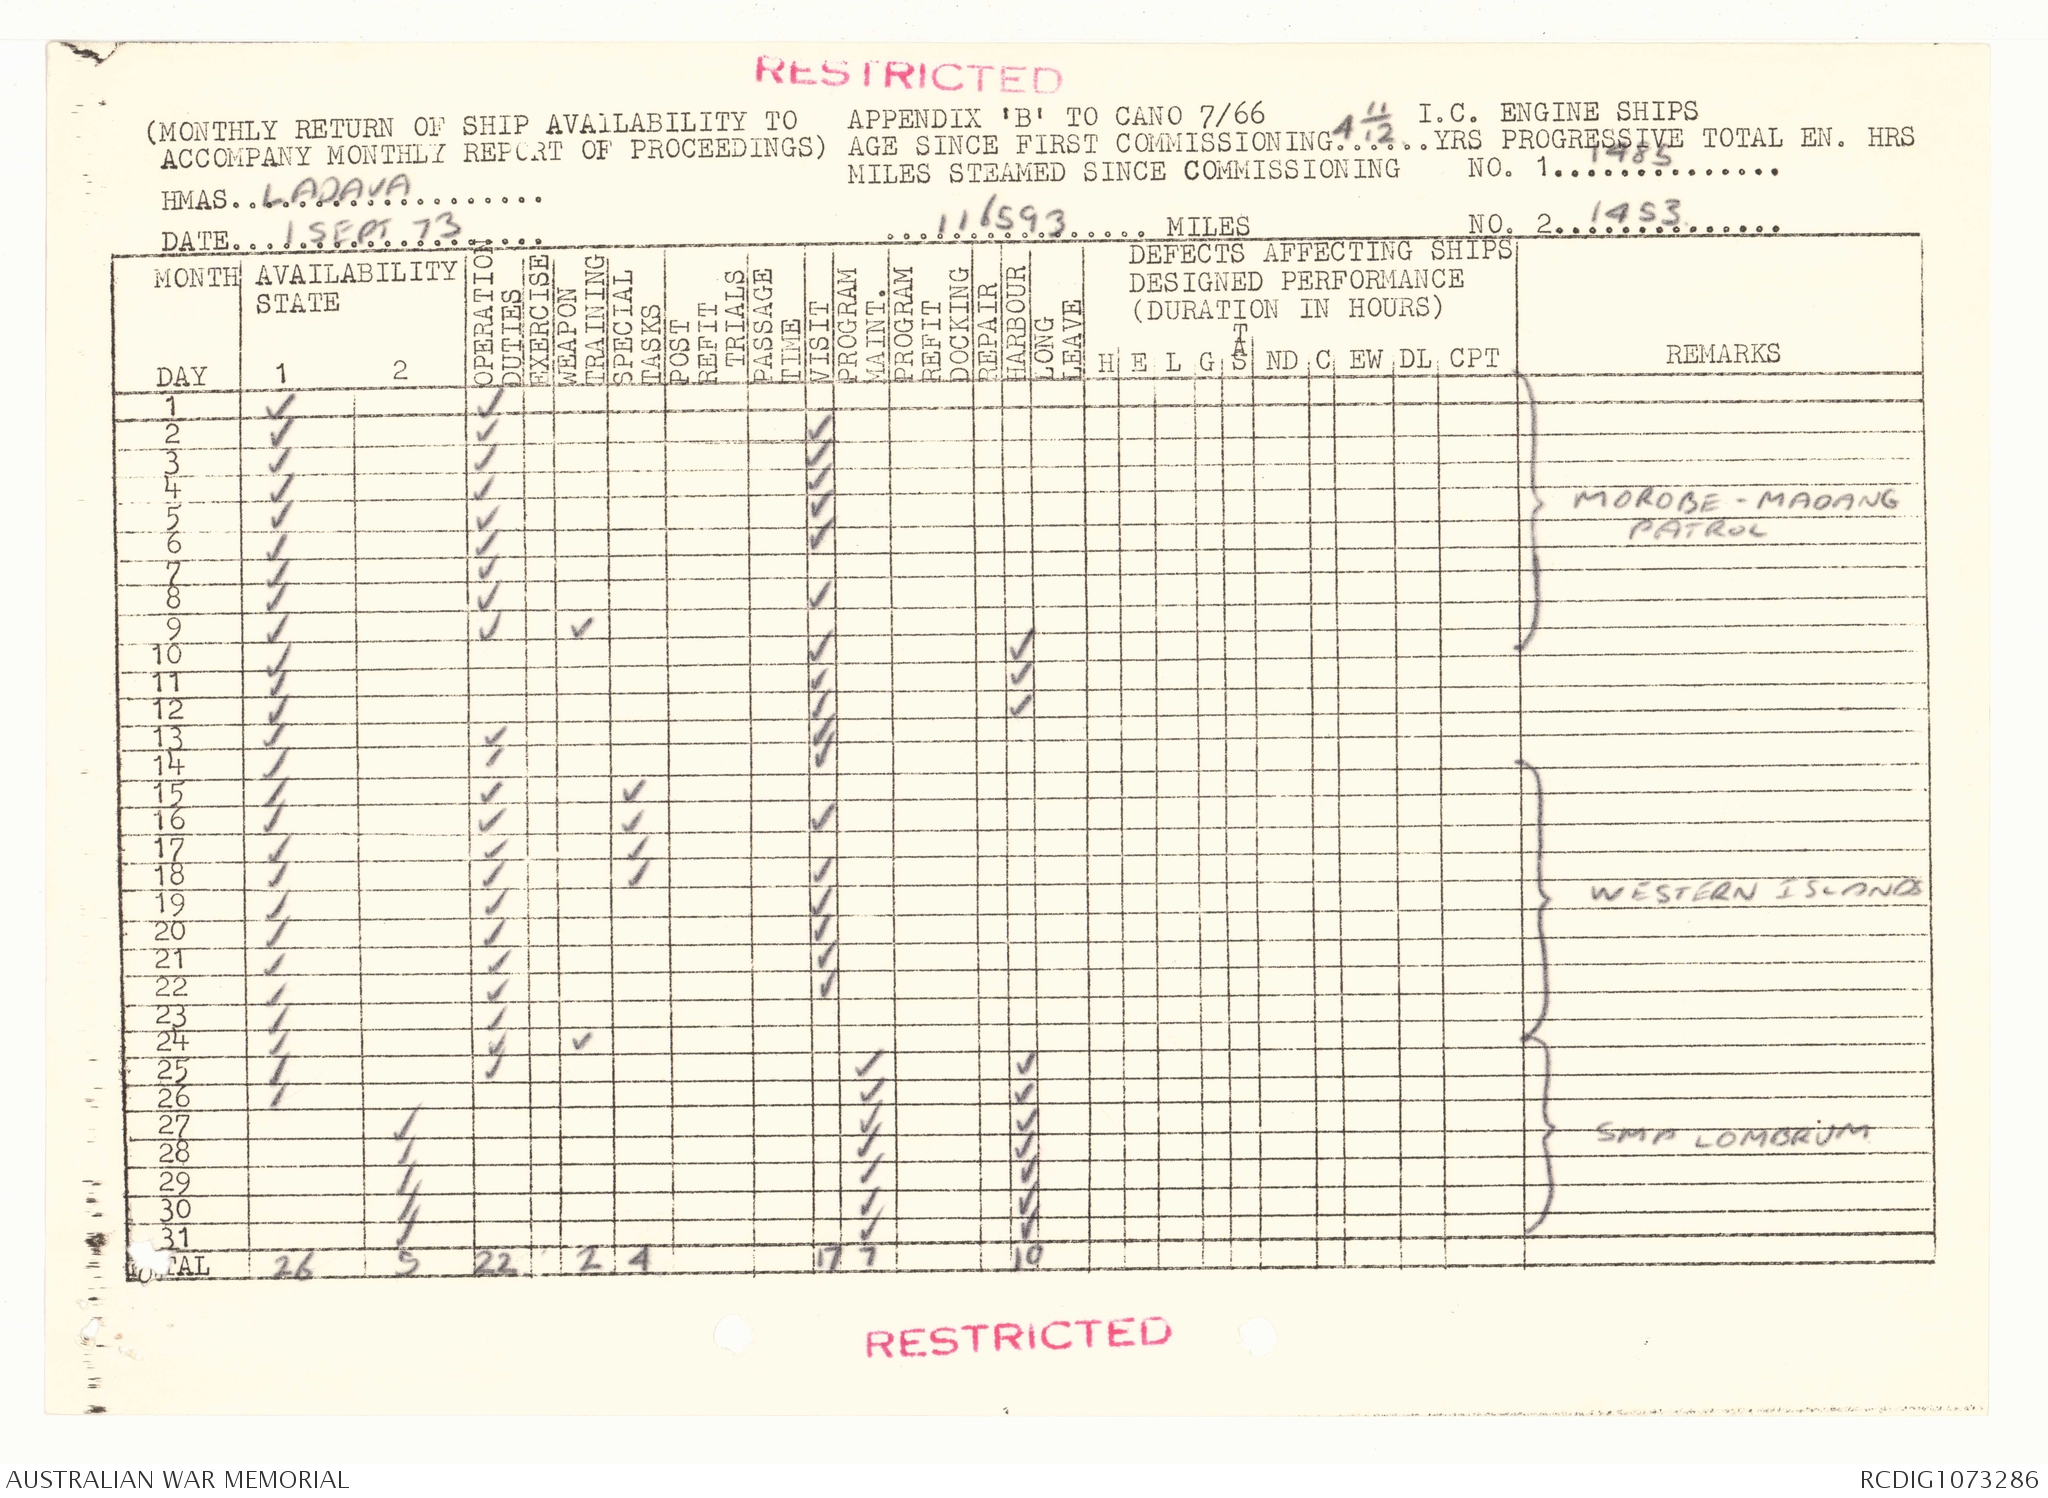 RESTRICTED
(MONTHLY RETURN OF SHIP AVAILABILITY TO
ACCOMPANY MONTHLY REPORT OF PROCEEDINGS)
HMAS..LADAVA
DATE...1 SEPT 73
APPENDIX 'B' TO CANO 7/66
AGE SINCE FIRST COMMISSIONING 4 11/12 YRS
MILES STEAMED SINCE COMMISSIONING
116593 MILES
I.C. ENGINE SHIPS
PROGRESSIVE TOTAL EN. HRS
NO. 1 1485
NO. 2 1453
MONTH
DAY
AVAILABILITY STATE
1 2
OPERATION DUTIES
EXERCISE
WEAPON TRAINING
SPECIAL TASKS
POST REFIT TRIALS
PASSAGE TIME
VISIT
PROGRAM MAINT.
PROGRAM REFIT DOCKING
REPAIR
HARBOUR
LONG LEAVE
DEFECTS AFFECTING SHIPS
DESIGNED PERFORMANCE
(DURATION IN HOURS)
H E L G TAS ND C EW DL CPT
REMARKS
1 ✓ ✓
2 ✓ ✓ ✓
3 ✓ ✓ ✓
4 ✓ ✓ ✓
5 ✓ ✓ ✓
6 ✓ ✓ ✓
7 ✓ ✓
8 ✓ ✓ ✓
9 ✓ ✓ ✓
MOROBE - MADANG
PATROL
10 ✓ ✓ ✓
11 ✓ ✓ ✓
12 ✓ ✓ ✓
13 ✓ ✓ ✓
14 ✓ ✓ ✓
15 ✓ ✓ ✓
16 ✓ ✓ ✓ ✓
17 ✓ ✓ ✓
18 ✓ ✓ ✓ ✓
19 ✓ ✓ ✓
20 ✓ ✓ ✓
21 ✓ ✓ ✓
22 ✓ ✓ ✓
23 ✓ ✓
WESTERN ISLANDS
24 ✓ ✓ ✓
25 ✓ ✓ ✓ ✓
26 ✓ ✓ ✓
27 ✓ ✓ ✓
28 ✓ ✓ ✓
29 ✓ ✓ ✓
30 ✓ ✓ ✓
31 ✓ ✓ ✓
SMP LOMBRUM
TOTAL 26 5 22 2 4 17 7 10
RESTRICTED
AUSTRALIAN WAR MEMORIAL
RCDIG1073286